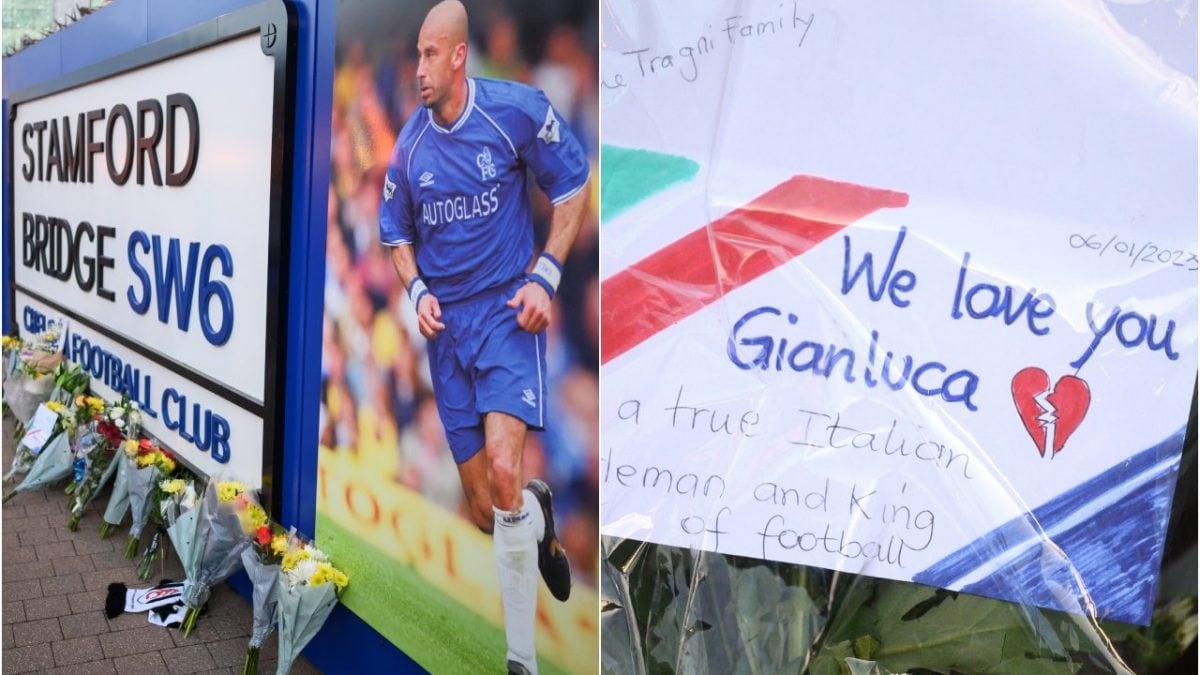 STAMFORD
BRIDGE SW6
CHELSEA FOOTBALL CLUB
AUTOGLASS
Tragni Family
06/01/2023
We love you
Gianluca
a true Italian
leman and King
of football